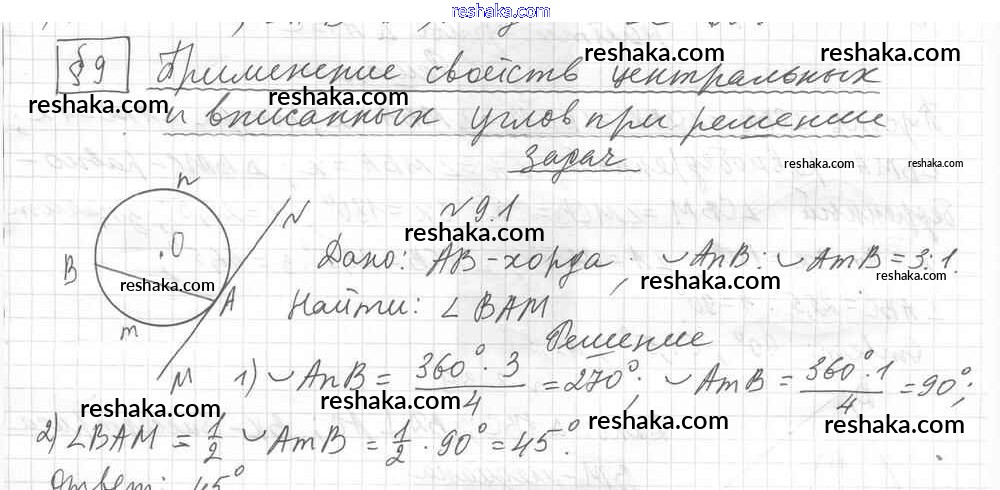 reshaka.com
§9 Применение свойств центральных
reshaka.com
reshaka.com
reshaka.com
reshaka.com
и вписанных углов при решение
задач
reshaka.com
reshaka.com
n
N
№9.1
reshaka.com
O
Дано: AB - хорда, ◡AnB : ◡AmB = 3:1.
B
reshaka.com
reshaka.com
reshaka.com
A
Найти: ∠BAM
m
Решение
M
1) ◡AnB = 360°·3/4 = 270°; ◡AmB = 360°·1/4 = 90°;
reshaka.com
reshaka.com
reshaka.com
reshaka.com
2) ∠BAM = 1/2 ◡AmB = 1/2 · 90° = 45°.
Ответ: 45°